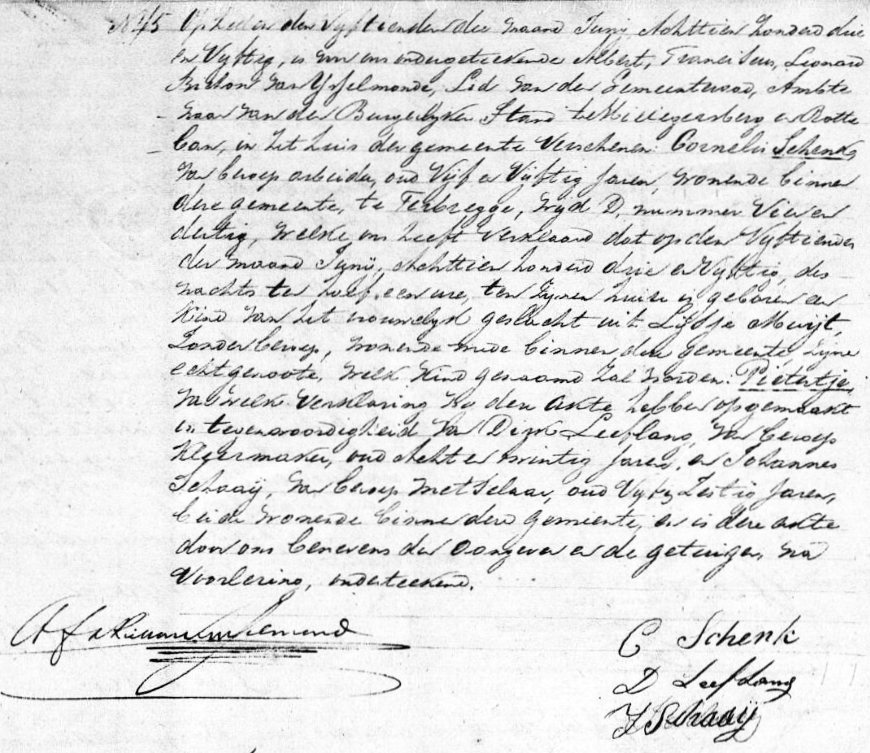 N 45 Op heden den Vyftienden der maand Juny Achttien honderd drie
en Vyftig, is voor ons ondergeteekende Albert, Franciscus, Leonard
Anthon van Ysselmonde, Lid van den Gemeenteraad, Ambte
naar van den Burgerlyken Stand te Hillegersberg en Rotte
ban, in het huis der gemeente verschenen: Cornelis Schenk,
van beroep arbeider, oud Vyf en Vyftig Jaren, wonende binnen
deze gemeente, te Terbregge, Wyk D, nummer Vier en
dertig, welke ons heeft verklaard dat op den Vyftienden
der maand Juny, achttien honderd drie en Vyftig, des
nachts ten half een ure, ten zynen huize is geboren een
Kind van het vrouwelyk geslacht uit Lijdje Muijt,
Zonder beroep, wonende mede binnen deze gemeente, zyne
echtgenoote, welk Kind genaamd zal worden: Pietertje,
van welke verklaring wy deze akte hebben opgemaakt
in tegenwoordigheid van Dirk Leeflang, van beroep
Kleermaker, oud acht en twintig Jaren, en Johannes
Schaaij, van beroep metselaar, oud Vyf en Zestig Jaren,
beide wonende binnen deze gemeente, en is deze akte
door ons benevens den aangever en de getuigen, na
voorlezing, onderteekend.
C Schenk
D Leeflang
J Schaaij